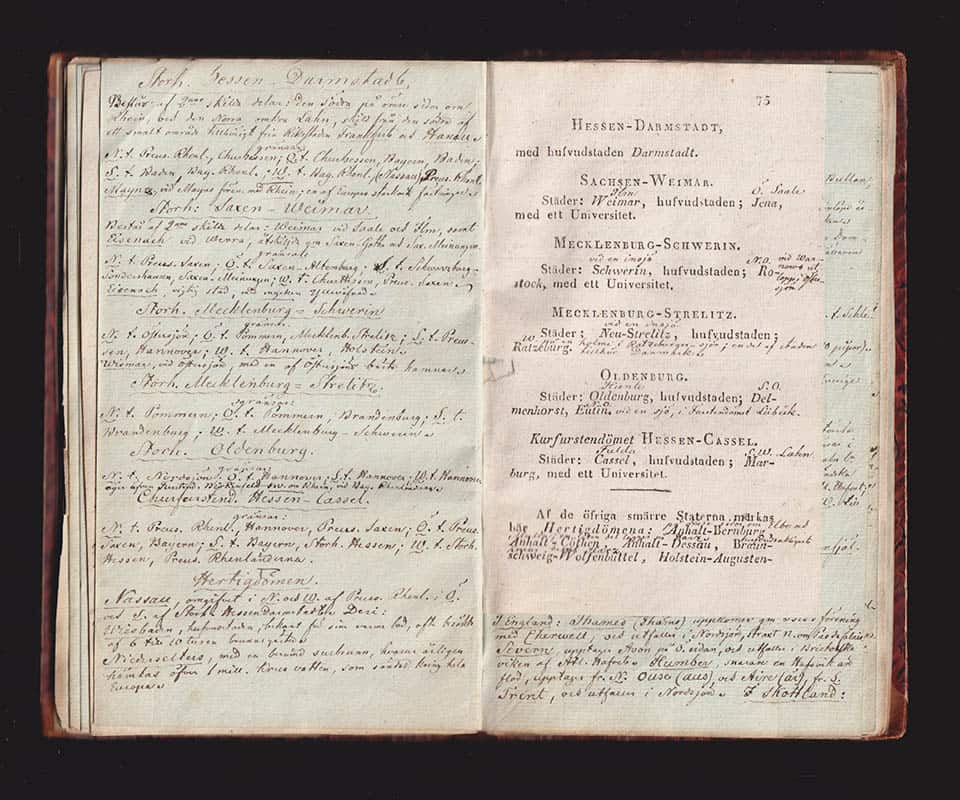 Storh. Hessen-Darmstadt,
Består af 2ne skilda delar: den södra på ömse sidor om
Rhein, och den Norra omkr Lahn, skild från den södra af
ett smalt område från Riksstaden Frankfurt och Hanau.
gränsar
N. t. Preus. Rhenl., Churhessen; Ö. t. Churhessen, Bayern, Baden;
S. t. Baden, Bay. Rhenl.; W. t. Bay. Rhenl. (Nassau) Preus. Rhenl.
Maynz, vid Mayns fören. med Rhein; en af Europas starkaste fästningar.
Storh. Saxen-Weimar
Består af 2ne skilda delar: Weimar vid Saale och Ilm, samt
Eisenach vid Werra, åtskilde gm Saxen-Gotha och Sax. Meinungen.
gränsar
N. t. Preus. Saxen; Ö. t. Saxen-Altenburg; S. t. Schwarzburg-
Sondershausen, Saxen-Meinungen; W. t. Churhessen, Preus. Saxen.
Eisenach, stad, med mycken
Storh. Mecklenburg-Schwerin
gränsar
N. t. Östersjön; Ö. t. Pommern, Mecklenb. Strelitz; S. t. Preus-
sen, Hannover; W. t. Hannover, Holstein.
Wismar, vid Östersjön, med en af Östersjöns bästa hamnar.
Storh. Mecklenburg-Strelitz.
gränsar
N. t. Pommern; Ö. t. Pommern, Brandenburg; S. t.
Brandenburg; W. t. Mecklenburg-Schwerin.
Storh. Oldenburg.
gränsar
N. t. Nordsjön; Ö. t. Hannover; S. t. Hannover; W. t. Hannover
äger sv. om Rhein, vid Bay. Rhenl.
Churfurstend. Hessen-Cassel.
gränsar:
N. t. Preus. Rhenl., Hannover, Preus. Saxen; Ö. t. Preus.
Saxen, Bayern; S. t. Bayern, Storh. Hessen; W. t. Storh.
Hessen, Preus. Rhenländerna.
Hertigdömen.
Nassau, omgifvet i N. och W. af Preus. Rhenl. i Ö.
och S. af Storh. Hessendarmstadt. Deri:
Wisbaden, hufvudstaden, bekant för sina varma bad, ofta besökte
af 6 till 10 tusen brunnsgäster.
Niederselters, med en berömd surbrunn, hvaraf årligen
hämtas öfver 1 mill. krus vatten, som sändes kring hela
Europa.
75
Hessen-Darmstadt,
med hufvudstaden Darmstadt.
Sachsen-Weimar.
Ilm Ö. Saale
Städer: Weimar, hufvudstaden; Jena,
med ett Universitet.
Mecklenburg-Schwerin.
vid en insjö N.O. vid War-
Städer: Schwerin, hufvudstaden; Ro-
stock, med ett Universitet.
nows utlopp i Östersjön
Mecklenburg-Strelitz.
vid en insjö
Städer: Neu-Strelitz, hufvudstaden;
W. på en holme i Ratzeburger-sjön; en del af staden
Ratzeburg.
tillhör Danmark.
Oldenburg.
Hunte S.O.
Städer: Oldenburg, hufvudstaden; Del-
menhorst, Eutin, vid en sjö, i Furstendömet Lübeck.
Kurfurstendömet Hessen-Cassel.
Fulda S.W. Lahn
Städer: Cassel, hufvudstaden; Mar-
burg, med ett Universitet.
Af de öfriga smärre Staterna märkas
här Hertigdömena: Anhalt-Bernburg
Anhalt-Cöthen Anhalt-Dessau, Braun-
schweig-Wolfenbüttel, Holstein-Augusten-
I England: Thames (Thäms) uppkommer gm
med Cherwell, och utfaller i Nordsjön,
Severn, upptager Avon på Ö. sidan, och utfaller i Bristolska
viken af Atl. Hafvet. Humber, snarare en Hafsvik än
flod, upptager fr. N. Ouse (aus) och Aire (är), fr. S.
Trent, och utfaller i Nordsjön. I Skottland: